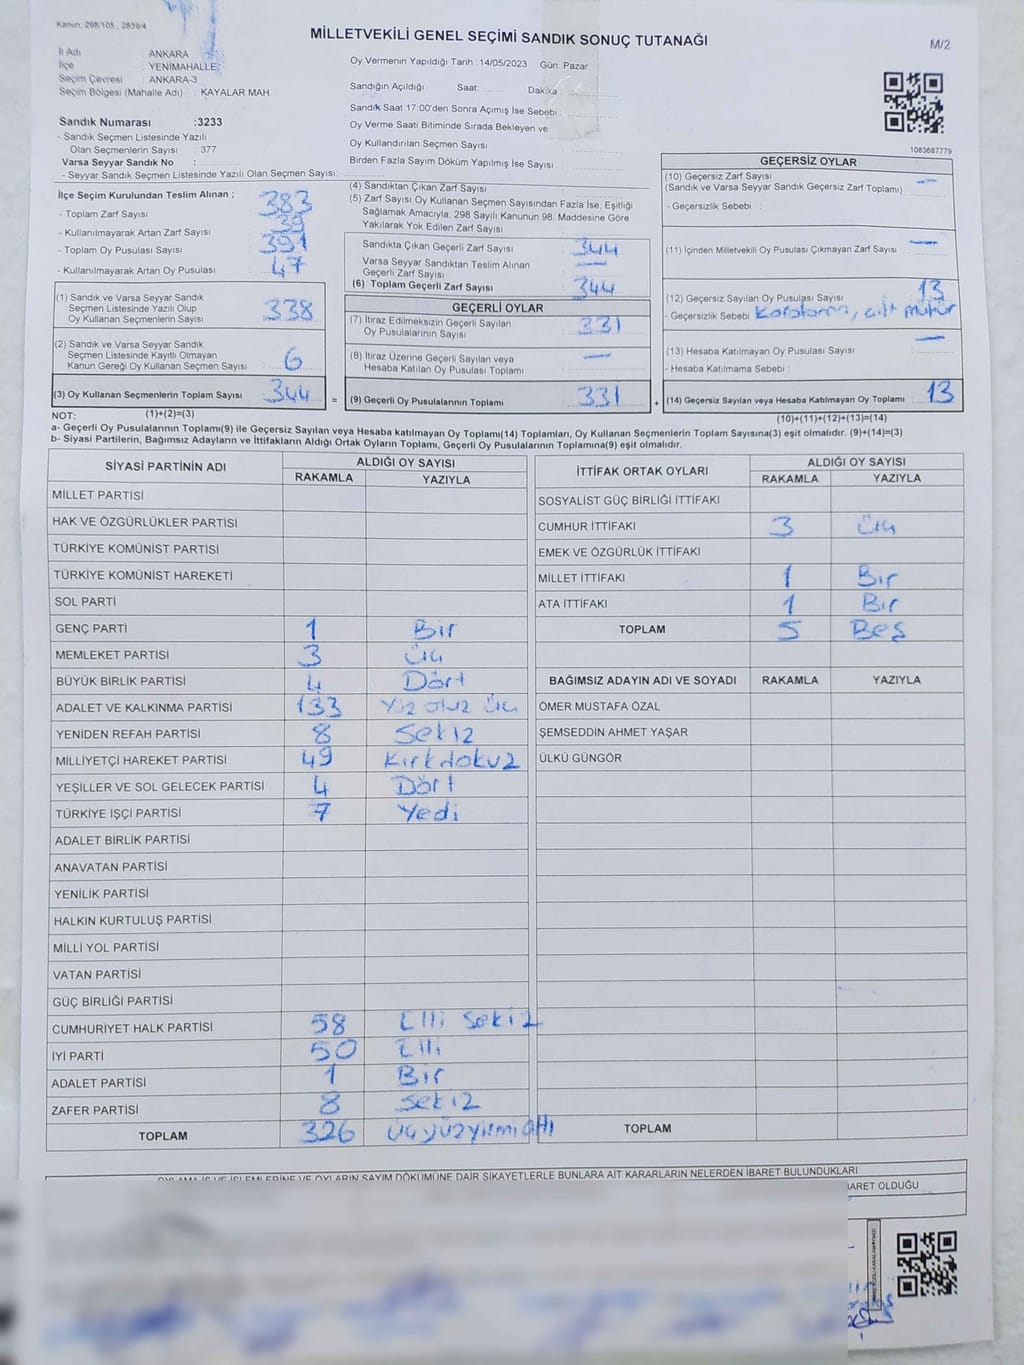 Kanun: 298/105 , 2839/4
MİLLETVEKİLİ GENEL SEÇİMİ SANDIK SONUÇ TUTANAĞI
M/2
İl Adı ANKARA
İlçe YENİMAHALLE
Seçim Çevresi : ANKARA-3
Seçim Bölgesi (Mahalle Adı) : KAYALAR MAH.
Oy Vermenin Yapıldığı Tarih : 14/05/2023 Gün: Pazar
Sandığın Açıldığı Saat: Dakika :
Sandık Saat 17:00'den Sonra Açımış İse Sebebi :
Oy Verme Saati Bitiminde Sırada Bekleyen ve
Oy Kullandırılan Seçmen Sayısı
Birden Fazla Sayım Döküm Yapılmış İse Sayısı :
Sandık Numarası :3233
- Sandık Seçmen Listesinde Yazılı
Olan Seçmenlerin Sayısı : 377
Varsa Seyyar Sandık No :
- Seyyar Sandık Seçmen Listesinde Yazılı Olan Seçmen Sayısı :
1083687779
İlçe Seçim Kurulundan Teslim Alınan ;
- Toplam Zarf Sayısı 383
- Kullanılmayarak Artan Zarf Sayısı 39
- Toplam Oy Pusulası Sayısı 391
- Kullanılmayarak Artan Oy Pusulası 47
(1) Sandık ve Varsa Seyyar Sandık
Seçmen Listesinde Yazılı Olup
Oy Kullanan Seçmenlerin Sayısı 338
(2) Sandık ve Varsa Seyyar Sandık
Seçmen Listesinde Kayıtlı Olmayan
Kanun Gereği Oy Kullanan Seçmen Sayısı 6
(3) Oy Kullanan Seçmenlerin Toplam Sayısı 344 =
(4) Sandıktan Çıkan Zarf Sayısı
(5) Zarf Sayısı Oy Kullanan Seçmen Sayısından Fazla İse, Eşitliği
Sağlamak Amacıyla, 298 Sayılı Kanunun 98. Maddesine Göre
Yakılarak Yok Edilen Zarf Sayısı
Sandıkta Çıkan Geçerli Zarf Sayısı 344
Varsa Seyyar Sandıktan Teslim Alınan
Geçerli Zarf Sayısı —
(6) Toplam Geçerli Zarf Sayısı 344
GEÇERLİ OYLAR
(7) İtiraz Edilmeksizin Geçerli Sayılan
Oy Pusulalarının Sayısı 331
(8) İtiraz Üzerine Geçerli Sayılan veya
Hesaba Katılan Oy Pusulası Toplamı —
(9) Geçerli Oy Pusulalarının Toplamı 331 +
GEÇERSİZ OYLAR
(10) Geçersiz Zarf Sayısı
(Sandık ve Varsa Seyyar Sandık Geçersiz Zarf Toplamı) : —
- Geçersizlik Sebebi :
(11) İçinden Milletvekili Oy Pusulası Çıkmayan Zarf Sayısı —
(12) Geçersiz Sayılan Oy Pusulası Sayısı 13
- Geçersizlik Sebebi
(13) Hesaba Katılmayan Oy Pusulası Sayısı —
- Hesaba Katılmama Sebebi :
(14) Geçersiz Sayılan veya Hesaba Katılmayan Oy Toplamı 13
NOT: (1)+(2)=(3)
(10)+(11)+(12)+(13)=(14)
a- Geçerli Oy Pusulalarının Toplamı(9) ile Geçersiz Sayılan veya Hesaba katılmayan Oy Toplamı(14) Toplamları, Oy Kullanan Seçmenlerin Toplam Sayısına(3) eşit olmalıdır. (9)+(14)=(3)
b- Siyasi Partilerin, Bağımsız Adayların ve İttifakların Aldığı Ortak Oyların Toplamı, Geçerli Oy Pusulalarının Toplamına(9) eşit olmalıdır.
SİYASİ PARTİNİN ADI ALDIĞI OY SAYISI
RAKAMLA YAZIYLA
MİLLET PARTİSİ
HAK VE ÖZGÜRLÜKLER PARTİSİ
TÜRKİYE KOMÜNİST PARTİSİ
TÜRKİYE KOMÜNİST HAREKETİ
SOL PARTİ
GENÇ PARTİ 1 Bir
MEMLEKET PARTİSİ 3 Üç
BÜYÜK BİRLİK PARTİSİ 4 Dört
ADALET VE KALKINMA PARTİSİ 133 Yüz otuz üç
YENİDEN REFAH PARTİSİ 8 Sekiz
MİLLİYETÇİ HAREKET PARTİSİ 49 Kırkdokuz
YEŞİLLER VE SOL GELECEK PARTİSİ 4 Dört
TÜRKİYE İŞÇİ PARTİSİ 7 Yedi
ADALET BİRLİK PARTİSİ
ANAVATAN PARTİSİ
YENİLİK PARTİSİ
HALKIN KURTULUŞ PARTİSİ
MİLLİ YOL PARTİSİ
VATAN PARTİSİ
GÜÇ BİRLİĞİ PARTİSİ
CUMHURİYET HALK PARTİSİ 58 Elli Sekiz
İYİ PARTİ 50 Elli
ADALET PARTİSİ 1 Bir
ZAFER PARTİSİ 8 Sekiz
TOPLAM 326 üçyüzyirmialtı
İTTİFAK ORTAK OYLARI ALDIĞI OY SAYISI
RAKAMLA YAZIYLA
SOSYALİST GÜÇ BİRLİĞİ İTTİFAKI
CUMHUR İTTİFAKI 3 Üç
EMEK VE ÖZGÜRLÜK İTTİFAKI
MİLLET İTTİFAKI 1 Bir
ATA İTTİFAKI 1 Bir
TOPLAM 5 Beş
BAĞIMSIZ ADAYIN ADI VE SOYADI RAKAMLA YAZIYLA
ÖMER MUSTAFA ÖZAL
ŞEMSEDDİN AHMET YAŞAR
ÜLKÜ GÜNGÖR
TOPLAM
OYLAMA İŞ VE İŞLEMLERİNE VE OYLARIN SAYIM DÖKÜMÜNE DAİR ŞİKAYETLERLE BUNLARA AİT KARARLARIN NELERDEN İBARET BULUNDUKLARI
BARET OLDUĞU